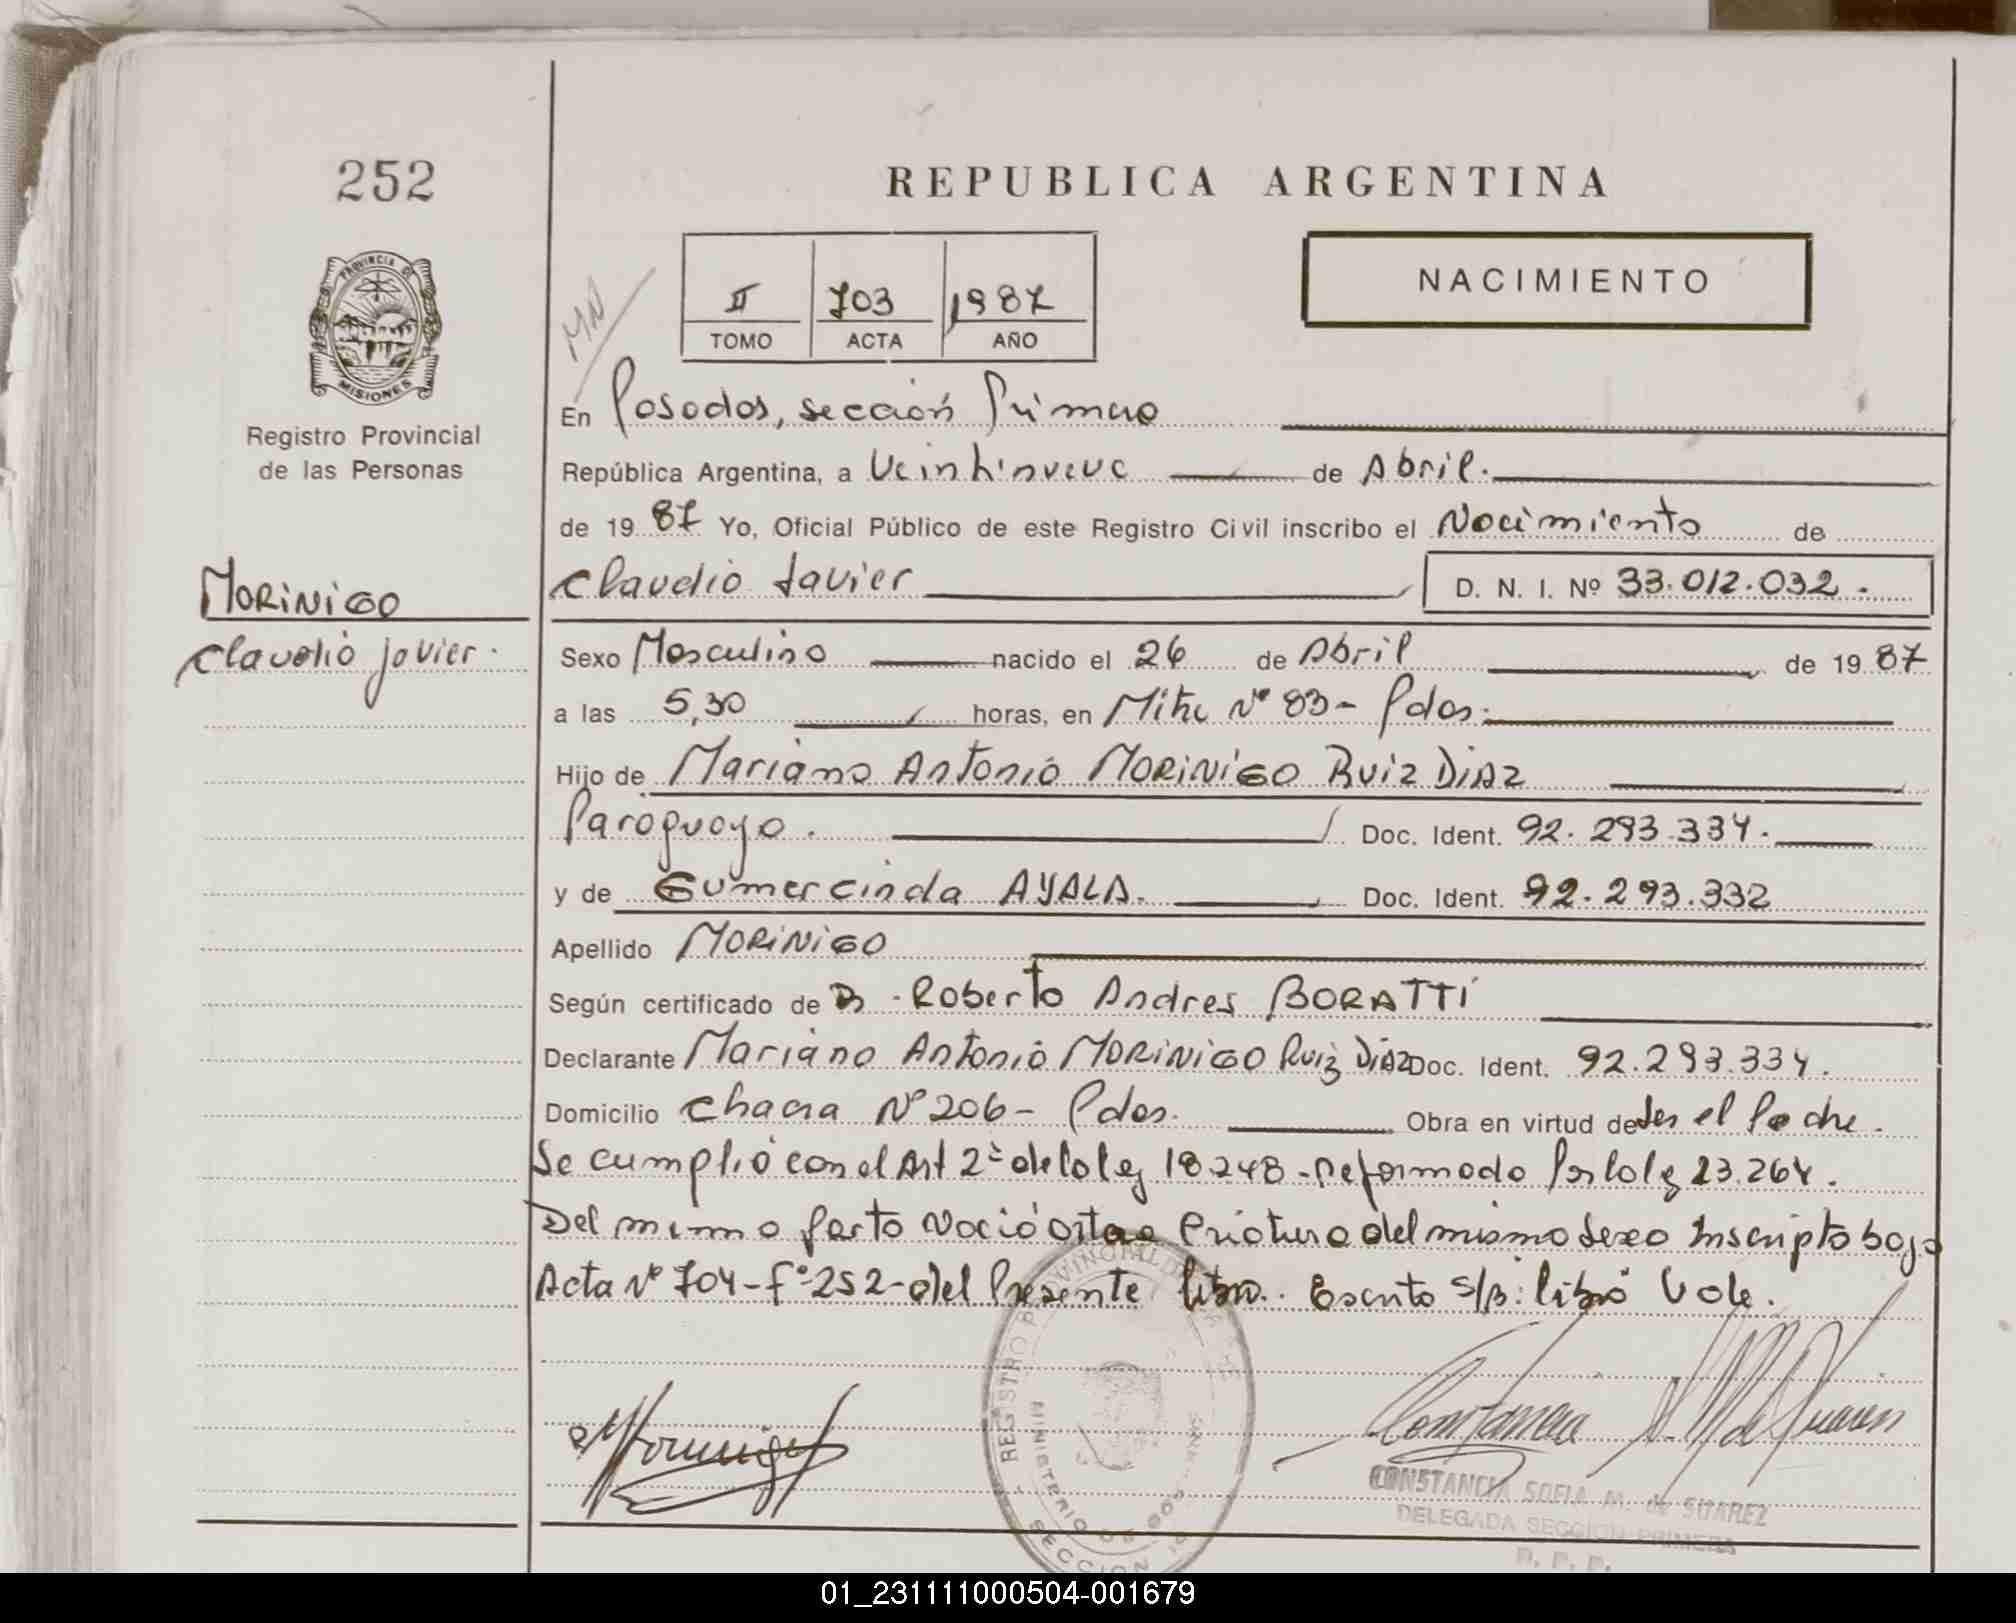 252
REPUBLICA ARGENTINA
PROVINCIA DE
MISIONES
Registro Provincial
de las Personas
MN
II 703 1987
TOMO ACTA AÑO
NACIMIENTO
En Posadas, sección Primera
República Argentina, a Veintinueve de Abril.
de 19 87 Yo, Oficial Público de este Registro Civil inscribo el Nacimiento de
MORINIGO
Claudio Javier D. N. I. Nº 33.012.032.
Claudio Javier.
Sexo Masculino nacido el 26 de Abril de 19 87
a las 5,30 horas, en Mitre Nº 83- Pdas.
Hijo de Mariano Antonio MORINIGO RUIZ DIAZ
Paraguayo. Doc. Ident. 92.293.334.
y de Gumercinda AYALA. Doc. Ident. 92.293.332
Apellido MORINIGO
Según certificado de Dr. Roberto Andres BORATTI
Declarante Mariano Antonio MORINIGO Ruiz DiAZ Doc. Ident. 92.293.334.
Domicilio Chacra Nº 206- Pdas. Obra en virtud de ser el Padre.
Se cumplió con el Art 2º de la ley 18.248-reformado por la ley 23.264.
Del mismo parto Nació otra Criatura del mismo sexo Inscripto bajo
Acta Nº 704-Fº-252-del Presente libro. Escrito s/b: libro Vale.
REGISTRO PROVINCIAL DE
MINISTERIO DE GOB
SECCION
CONSTANCIA SOFIA M. de SUAREZ
DELEGADA SECCION PRIMERA
R. P. P.
01_231111000504-001679